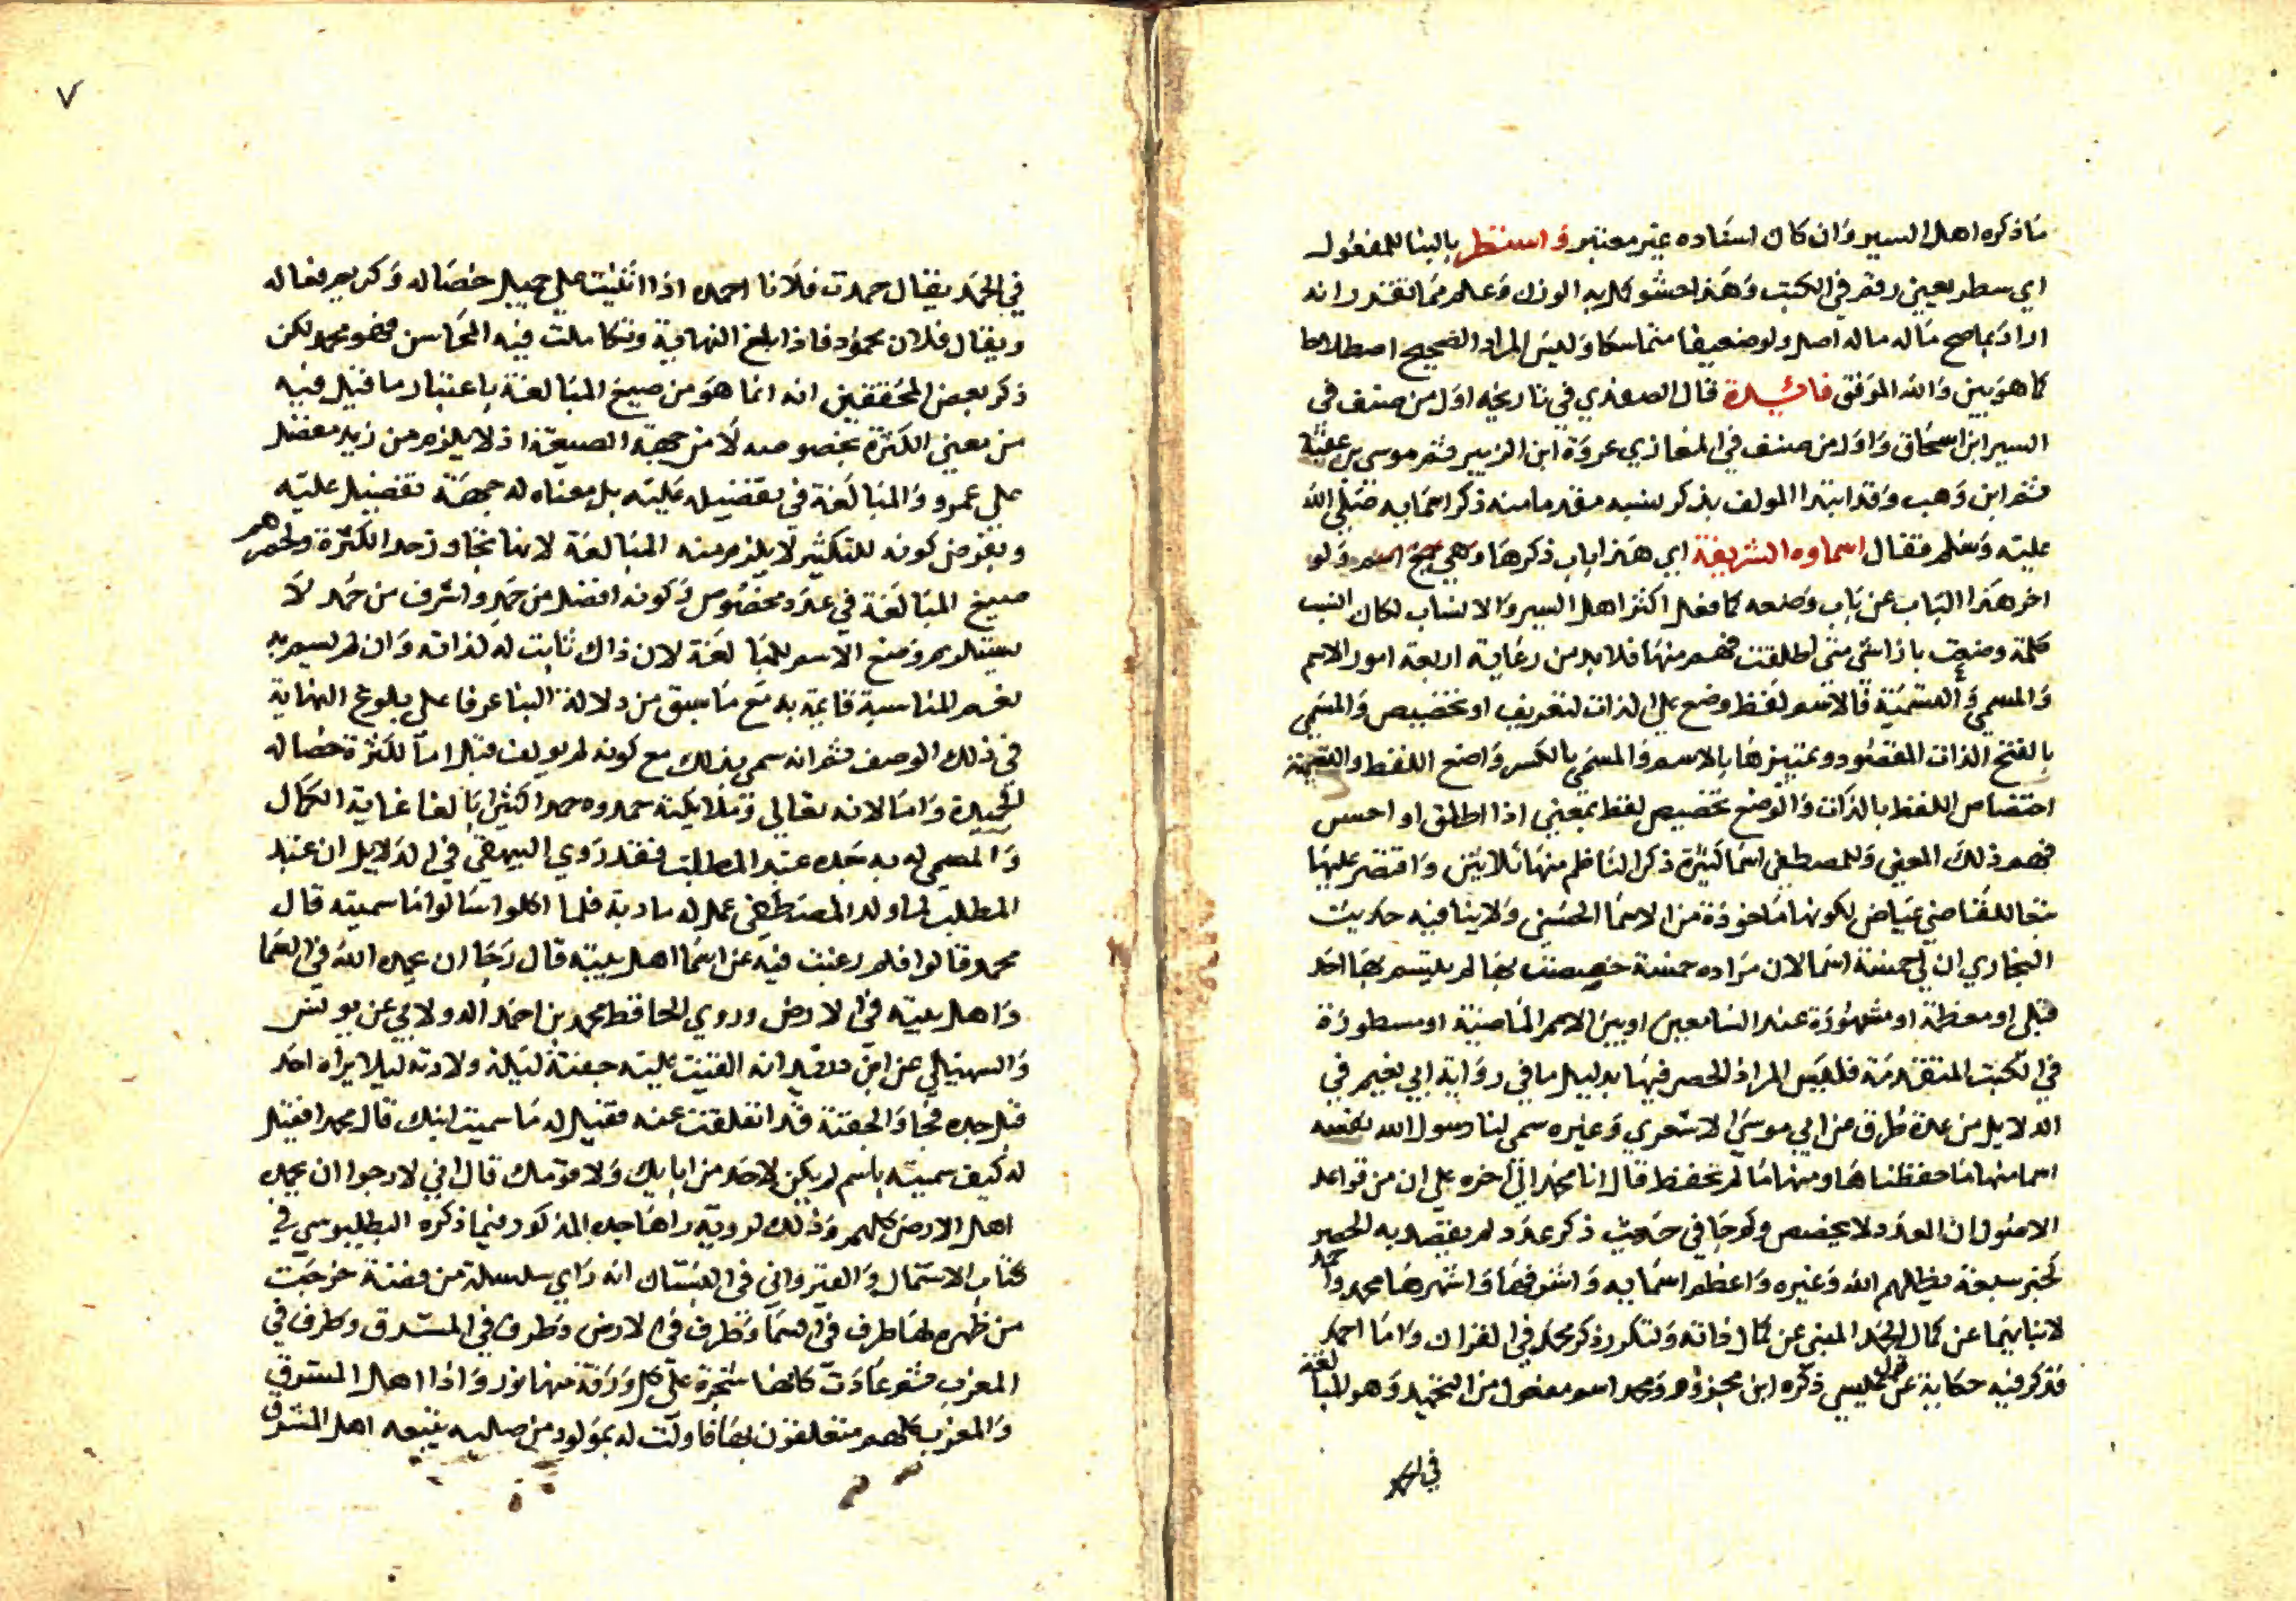 ما ذكره اهل السير وان كان اسناده غير معتبر واستطر بالبنا للمفعول
اي سطر بعين رقم في الكتب وهذا حشو كمل به الوزن وعلم مما تقدر انه
اراد بما صح ماله ماله اصل ولو ضعيفا متماسكا وليس المراد الصحيح اصطلاحا
كما هو بين والله الموفق فائدة قال الصفدي في تاريخه اول من صنف في
السير ابن اسحاق واول من صنف في المغازي عروة ابن الزبير ثم موسى بن عقبة
ثم ابن وهب وقد ابتدا المولف بذكر نسبه مقدما منه ذكر اسمايه صلى الله
عليه وسلم فقال اسماوه الشريفة اي هذا باب ذكرها وهي جمع اسم ولو
اخر هذا الباب عن باب وضعه كما فعل اكثر اهل السير والانساب لكان انسب
كلمة وضعت بازا شي متى اطلقت فهم منها فلابد من رعاية اربعة امور الاسم
والمسمي والتسمية فالاسم لفظ وضع علي الذات لتعريف او تخصيص والمسمي
بالفتح الذات المقصود وتمييزها بالاسم والمسمي بالكسر واضع اللفظ والتسمية
اختصاص اللفظ بالذات والوضع تخصيص لفظ بمعني اذا اطلق او احس
فهم ذلك المعني وللمصطفي اسما كثيرة ذكر الناظم منها ثلاثين واقتصر عليها
تبعا للقاضي عياض لكونها ماخوذة من الاسما الحسني ولا ينافيه حديث
البخاري ان لي خمسة اسما لان مراده خمسة خصصت بها لم يتسم بها احد
قبلي او معظمة او مشهورة عند السامعين او بين الامم الماضية او مسطورة
في الكتب المتقدمة فليس المراد الحصر فيها بدليل ما في رواية ابي نعيم في
الدلايل من عدة طرق عن ابي موسي الاشعري وغيره سمي لنا رسول الله نفسه
اسما منها ما حفظناها ومنها ما لم نحفظ قال انا محمد الي اخره علي ان من قواعد
الاصول ان العدد لا يخصص وكم جا في حديث ذكر عدد لم يقصد به الحصر
كخبر سبعة يظلهم الله وغيره واعظم اسمايه واشرفها واشهرها محمد واحمد
لانبايهما عن كمال الحمد المبني عن كمال ذاته ولتكرر ذكر محمد في القران واما احمد
فذكر فيه حكاية عن قول عيسي ذكره ابن مجبور ومحمد اسم مفعول من التحميد وهو المبالغة
في الحمد
٧
في الحمد يقال حمدت فلانا احمده اذا اثنيت علي جميل خصاله وكريم فعاله
ويقال فلان محمود فاذا بلغ النهاية وتكاملت فيه المحاسن فهو محمد لكن
ذكر بعض المحققين انه انما هو من صيغ المبالغة باعتبار ما قيل فيه
من معني الكثرة بخصوصه لا من جهة الصيغة اذ لا يلزم من زيد مفضل
علي عمرو والمبالغة في تفضيله عليه بل معناه له جهة تفضيل عليه
وبفرض كونه للتكثير لا يلزم منه المبالغة لانها تجاوز حد الكثرة ولحصرهم
صيغ المبالغة في عدد مخصوص وكونه افضل من حمد واشرف من حمد لا
يستلزم وضع الاسم للمبالغة لان ذاك ثابت له لذاته وان لم يسم به
نعم المناسبة قايمة به مع ما سبق من دلالة البنا عرفا علي بلوغ النهاية
في ذلك الوصف ثم انه سمي بذلك مع كونه لم يولف قبل اما لكثرة خصاله
الحميدة واما لانه تعالي وملايكته حمدوه حمدا كثيرا بالغا غاية الكمال
والمسمي له به جده عبد المطلب فقد روي البيهقي في الدلايل ان عبد
المطلب لما ولد المصطفي عمل له مادبة فلما اكلوا سالوا ما سميته قال
محمد قالوا فلم رغبت فيه عن اسما اهل بيته قال رجا ان يحمده الله في السما
واهل بيته في الارض وروي الحافظ محمد بن احمد الدولابي عن يونس
والسهيلي عن ابن انه القيت عليه جفنة ليلة ولادته ليلا يراه احد
قبل جده فجا والجفنة قد انفلقت عنه فقيل له ما سميت ابنك قال محمد افقيل
له كيف سميته باسم لم يكن لاحد من ابايك ولا قومك قال اني لارجوا ان يحمده
اهل الارض كلهم وذلك لروية راها جده المذكور فيما ذكره البطليوسي في
كتاب الاستمال والقيرواني في البستان انه راي سلسلة من فضة خرجت
من ظهره لها طرف في السما وطرف في الارض وطرف في المشرق وطرف في
المغرب ثم عادت كانها شجرة علي كل ورقة منها نور واذا اهل المشرق
والمغرب كلهم متعلقون بها فاولت له بمولود من صلبه يتبعه اهل المشرق